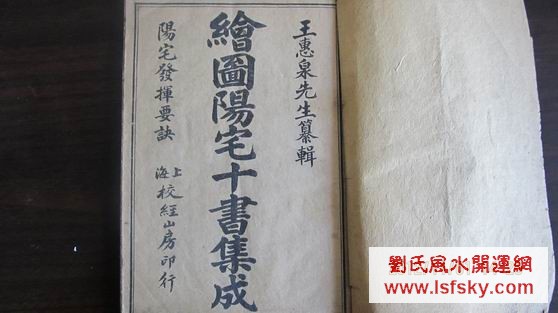 王惠泉先生纂輯
繪圖陽宅十書集成
陽宅發揮要訣
上海校經山房印行
劉氏風水開運網
www.lsfsky.com